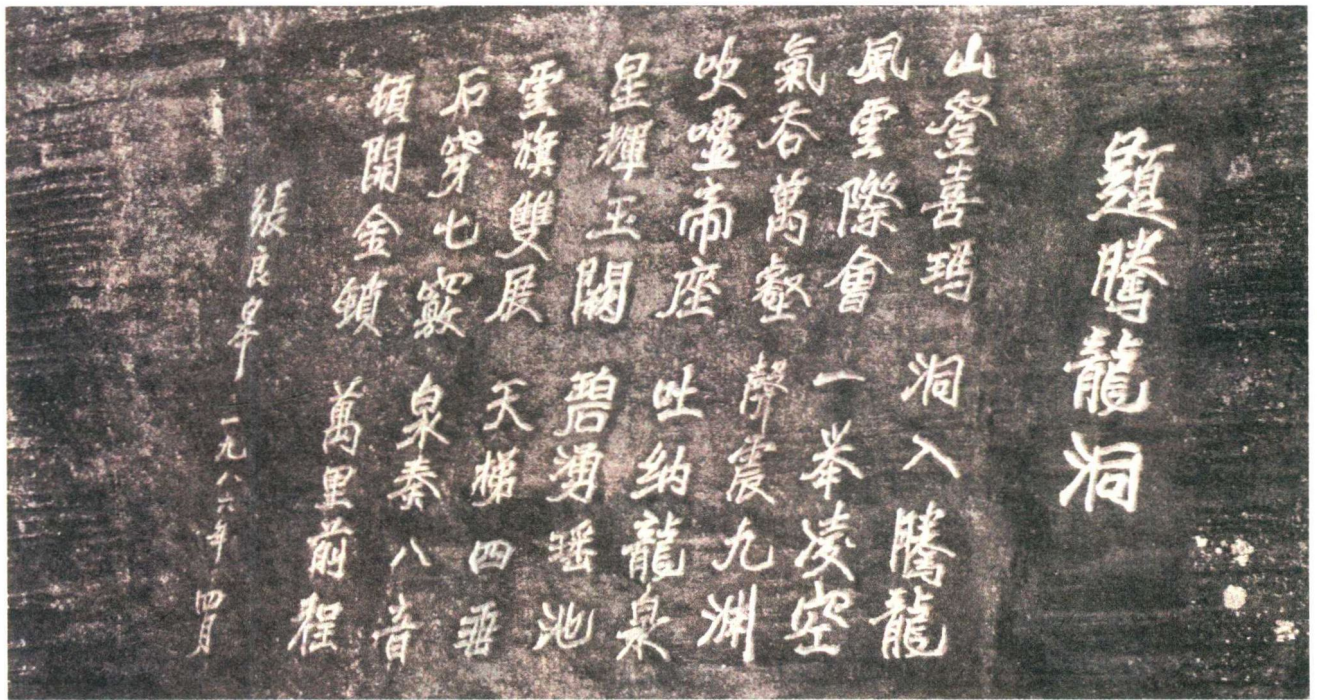 題騰龍洞
山登喜玛 洞入騰龍
風雲際會 一举凌空
氣吞萬壑 聲震九渊
吹噓帝座 吐纳龍泉
星輝玉闕 碧湧瑶池
雲旗雙展 天梯四垂
石穿七竅 泉奏八音
頓開金鎖 萬里前程
張良皋 一九八六年四月